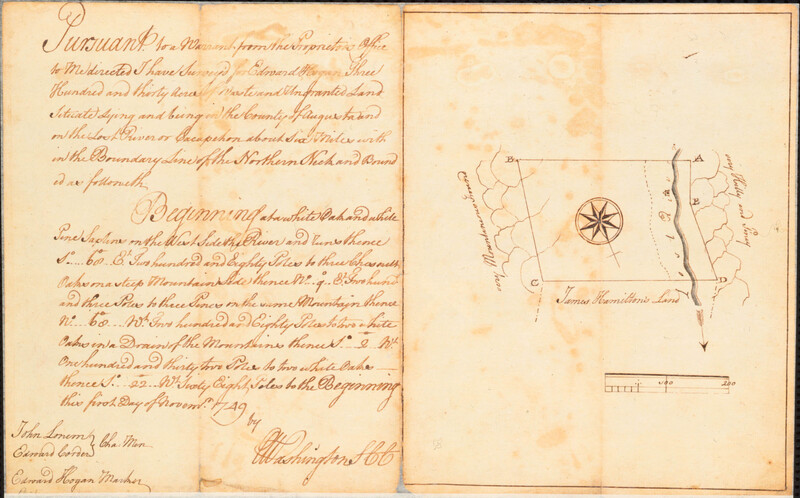 Pursuant to a Warrant from the Proprietors Office
to Me directed I have Surveyed for Edward Hogan Three
Hundred and thirty Acres of waste and Ungranted Land
Situate Lying and being in the County of Augusta and
on the Lost River or Cacapehon about Six Miles with
in the Boundary Line of the Northern Neck and Bound
ed as followeth
Beginning at a white Oak and white
Pine Sapling on the West Side the River and runs thence
So. 68 Et. Two hundred and Eighty Poles to three Chesnutt
Oaks on a steep Mountain Side thence No. 9 Et. Two hund
and three Poles to three Pines on the same Mountain thence
No. 68 Wt. Two hundred and Eighty Poles to two white
Oaks in a Drain of the Mountains thence So. 2 Wt.
One hundred and thirty two Poles to two white Oaks
thence So. 22 Wt. Sixty Eight Poles to the Beginning
this first Day of Novemr. 1749
by
GWashington SCC
John Lonem
Edward Corder
Cha. Men
Edward Hogan Marker
B
A
E
C
D
very Hilly and Piney
very Mountaineous
James Hamilton's Land
100
200